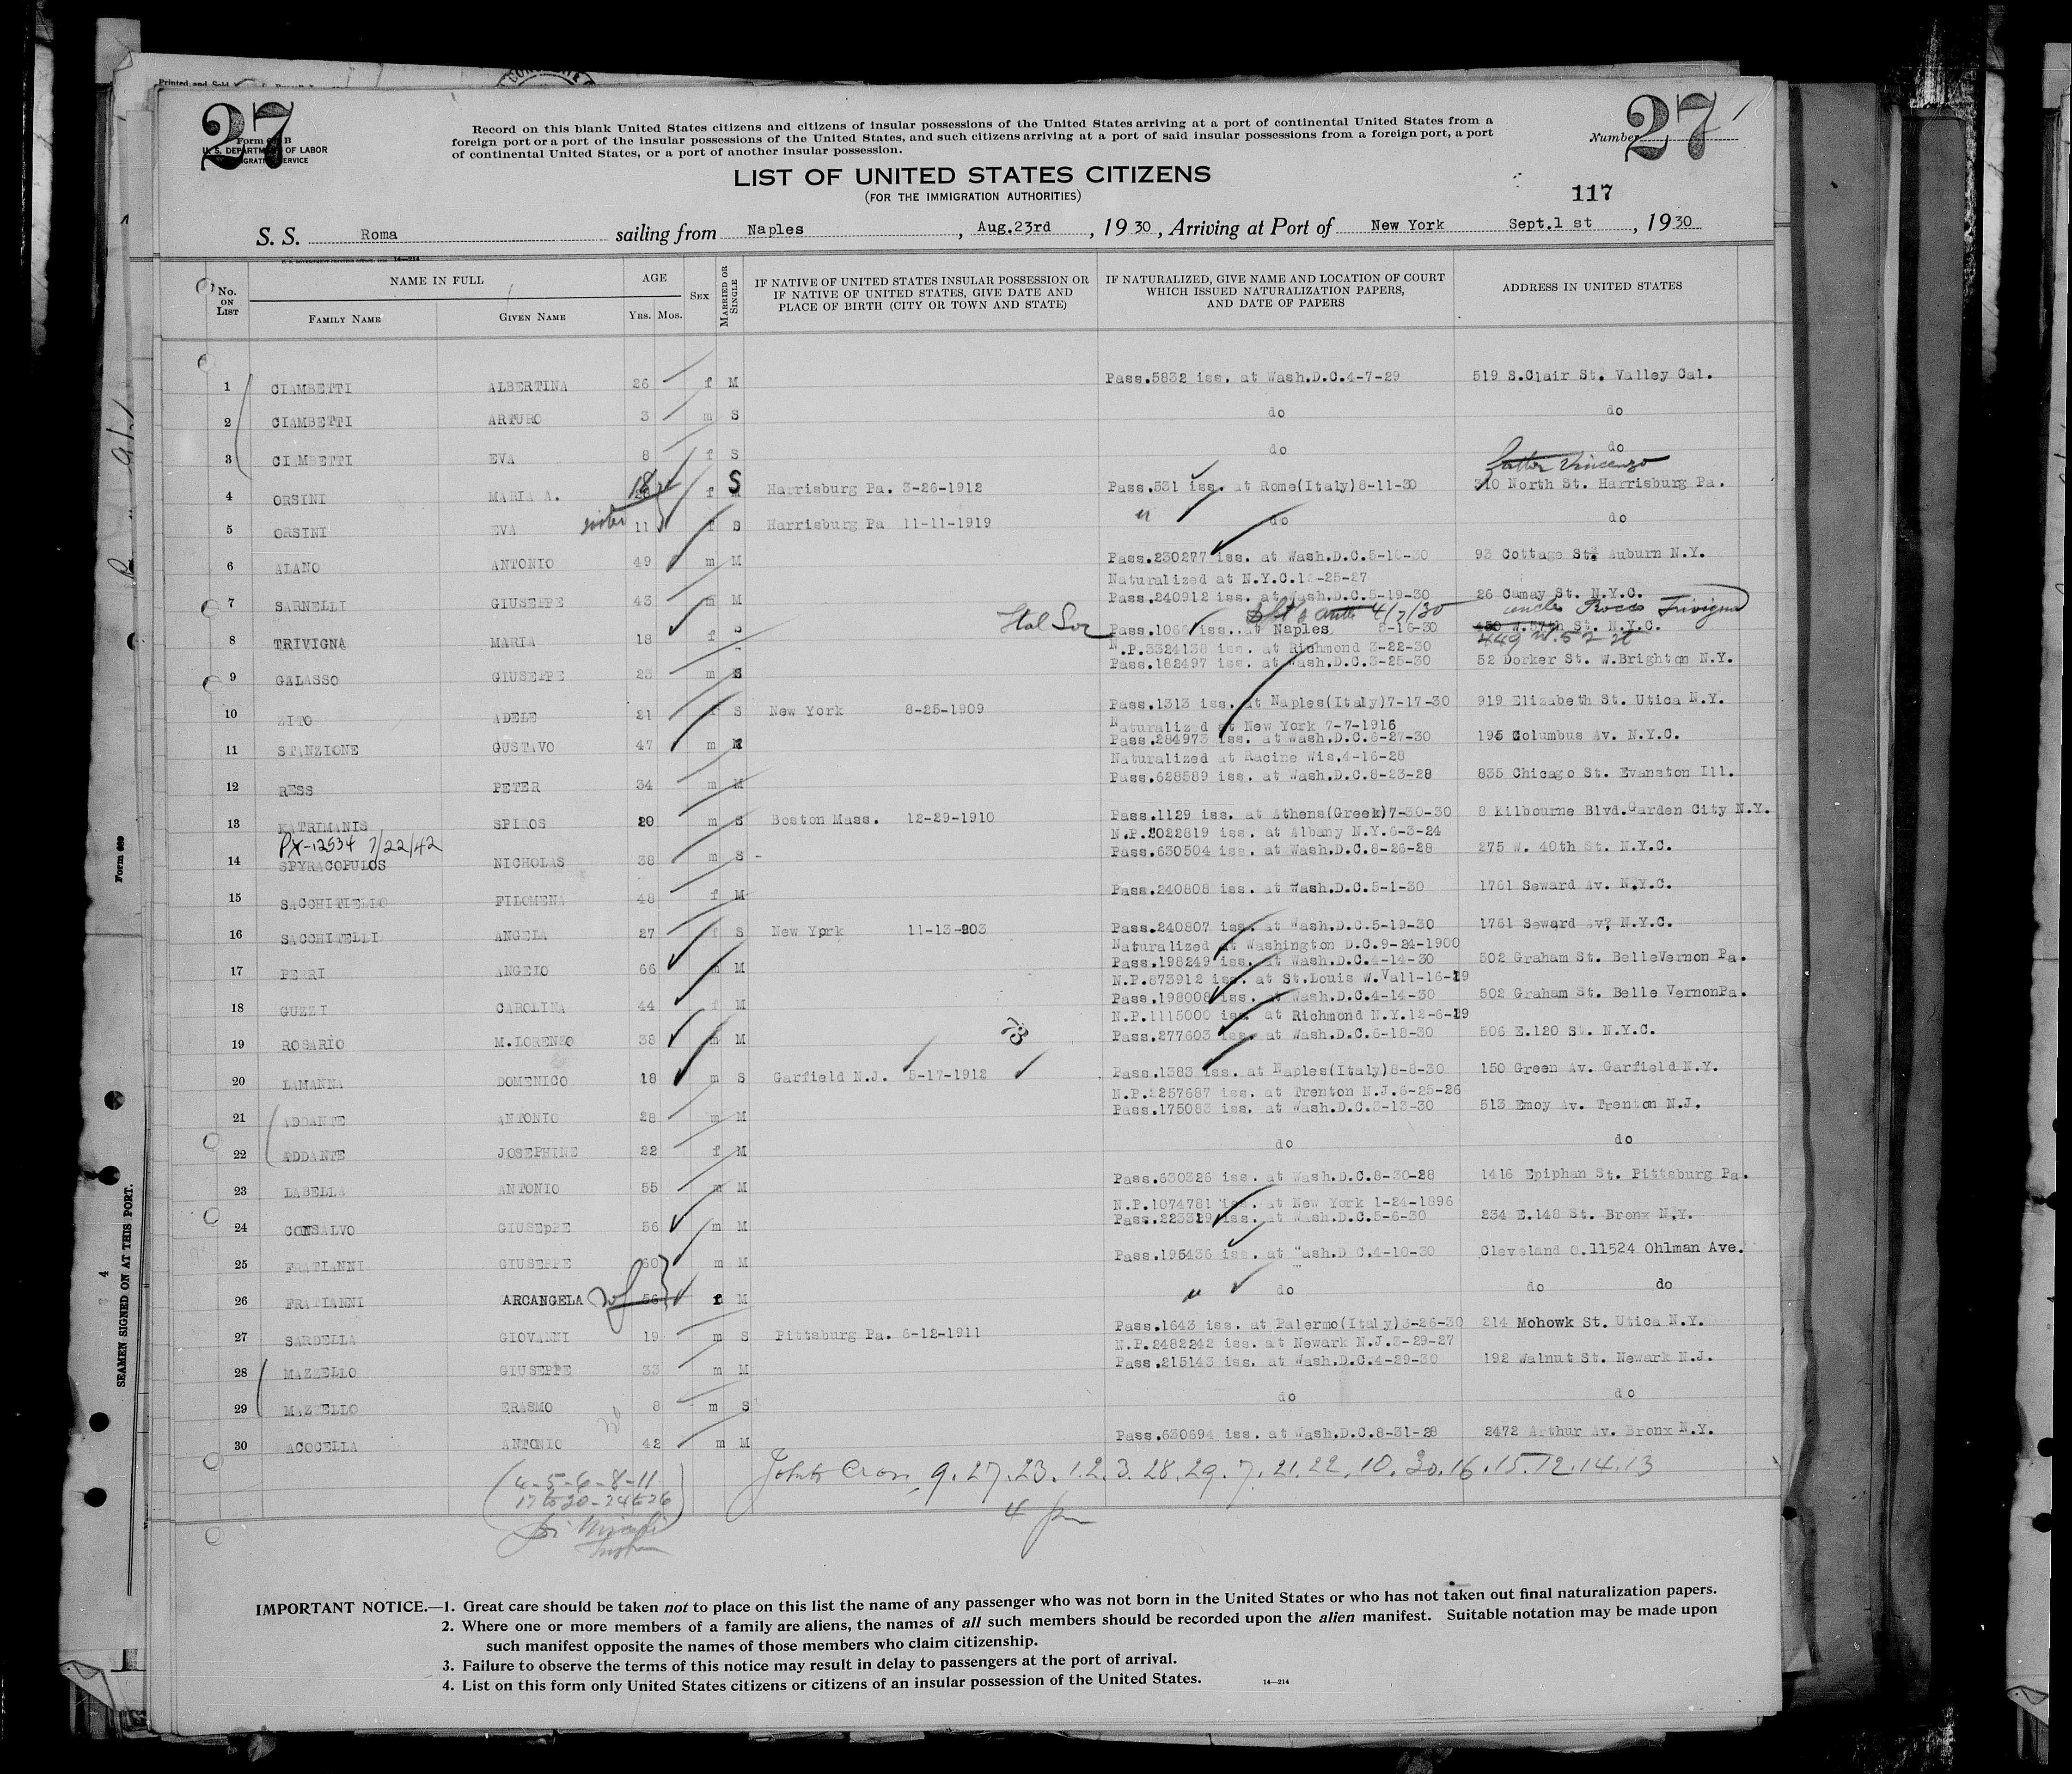 27
Form B
U. S. DEPARTMENT OF LABOR
IMMIGRATION SERVICE
Record on this blank United States citizens and citizens of insular possessions of the United States arriving at a port of continental United States from a
foreign port or a port of the insular possessions of the United States, and such citizens arriving at a port of said insular possessions from a foreign port, a port
of continental United States, or a port of another insular possession.
Number 27
LIST OF UNITED STATES CITIZENS
(FOR THE IMMIGRATION AUTHORITIES)
117
S. S. Roma sailing from Naples, Aug.23rd, 1930, Arriving at Port of New York Sept.1 st, 1930
14—214
No. ON LIST
NAME IN FULL
FAMILY NAME
GIVEN NAME
AGE
YRS. MOS.
SEX
MARRIED OR SINGLE
IF NATIVE OF UNITED STATES INSULAR POSSESSION OR
IF NATIVE OF UNITED STATES, GIVE DATE AND
PLACE OF BIRTH (CITY OR TOWN AND STATE)
IF NATURALIZED, GIVE NAME AND LOCATION OF COURT
WHICH ISSUED NATURALIZATION PAPERS,
AND DATE OF PAPERS
ADDRESS IN UNITED STATES
1 CIAMBETTI ALBERTINA 26 f M Pass.5832 iss. at Wash.D.C.4-7-29 519 S.Clair St. Valley Cal.
2 CIAMBETTI ARTURO 3 m S do do
3 CIAMBETTI EVA 8 f S do do
father Vincenzo
4 ORSINI MARIA A. 18 f S Harrisburg Pa. 3-26-1912 Pass.531 iss. at Rome(Italy)8-11-30 310 North St. Harrisburg Pa.
5 ORSINI EVA sister 11 f S Harrisburg Pa 11-11-1919 " do do
6 ALANO ANTONIO 49 m M Pass.230277 iss. at Wash.D.C.5-10-30 93 Cottage St. Auburn N.Y.
Naturalized at N.Y.C.1 -25-27
7 SARNELLI GIUSEPPE 43 m M Pass.240912 iss. at Wash.D.C.5-19-30 26 Camay St. N.Y.C.
4/7/30 uncle Rocco Trivigna
8 TRIVIGNA MARIA 18 f S Ital Soc Pass.1066 iss. at Naples 5-16-30 450 W.57th St. N.Y.C.
449 W. 52 st
N.P.3324138 iss. at Richmond 3-22-30
9 GALASSO GIUSEPPE 23 m S Pass.182497 iss. at Wash.D.C.3-25-30 52 Dorker St. W.Brighton N.Y.
10 ZITO ADELE 21 f S New York 8-25-1909 Pass.1313 iss. at Naples(Italy)7-17-30 919 Elizabeth St. Utica N.Y.
Naturalized at New York 7-7-1916
11 STANZIONE GUSTAVO 47 m M Pass.284973 iss. at Wash.D.C.6-27-30 195 Columbus Av. N.Y.C.
Naturalized at Racine Wis.4-16-28
12 RESS PETER 34 m M Pass.628589 iss. at Wash.D.C.8-23-28 835 Chicago St. Evanston Ill.
13 KATRIMANIS SPIROS 20 m S Boston Mass. 12-29-1910 Pass.1129 iss. at Athens(Greek)7-30-30 8 Kilbourne Blvd.Garden City N.Y.
PX-12534 7/22/42
N.P.2022819 iss. at Albany N.Y.6-3-24
14 SPYRACOPULOS NICHOLAS 38 m S - Pass.630504 iss. at Wash.D.C.8-26-28 275 W. 40th St. N.Y.C.
15 SACCHITIELLO FILOMENA 48 f M Pass.240808 iss. at Wash.D.C.5-1-30 1761 Seward Av. N.Y.C.
16 SACCHITELLI ANGELA 27 f S New York 11-13-903 Pass.240807 iss. at Wash.D.C.5-19-30 1761 Seward Av. N.Y.C.
Naturalized at Washington D.C.9-24-1900
17 PERRI ANGELO 66 m M Pass.198249 iss. at Wash.D.C.4-14-30 502 Graham St. BelleVernon Pa.
N.P.873912 iss. at St.Louis W.Va11-16-19
18 GUZZI CAROLINA 44 f M Pass.198008 iss. at Wash.D.C.4-14-30 502 Graham St. Belle VernonPa.
N.P.1115000 iss. at Richmond N.Y.12-6-19
19 ROSARIO M.LORENZO 38 m M Pass.277603 iss. at Wash.D.C.6-18-30 506 E.120 St. N.Y.C.
20 LAMANNA DOMENICO 18 m S Garfield N.J. 5-17-1912 Pass.1383 iss. at Naples(Italy)8-8-30 150 Green Av. Garfield N.Y.
N.P.2257687 iss. at Trenton N.J.6-25-26
21 ADDANTE ANTONIO 28 m M Pass.175083 iss. at Wash.D.C.3-13-30 513 Emoy Av. Trenton N.J.
22 ADDANTE JOSEPHINE 22 f M do do
23 LABELLA ANTONIO 55 m M Pass.630326 iss. at Wash.D.C.8-30-28 1416 Epiphan St. Pittsburg Pa.
N.P.1074781 iss. at New York 1-24-1896
24 CONSALVO GIUSEpPE 56 m M Pass.223319 iss. at Wash.D.C.5-6-30 234 E.148 St. Bronx N.Y.
25 FRATIANNI GIUSEPPE 60 m M Pass.195436 iss. at "ash.D C.4-10-30 Cleveland O.11524 Ohlman Ave.
26 FRATIANNI ARCANGELA wf 56 f M " do do do
27 SARDELLA GIOVANNI 19 m S Pittsburg Pa. 6-12-1911 Pass.1643 iss. at Palermo(Italy)3-26-30 214 Mohowk St. Utica N.Y.
N.P.2482242 iss. at Newark N.J.3-29-27
28 MAZZELLO GIUSEPPE 33 m M Pass.215143 iss. at Wash.D.C.4-29-30 192 Walnut St. Newark N.J.
29 MAZZELLO ERASMO 8 m S do do
30 ACOCELLA ANTONIO 42 m M Pass.630694 iss. at Wash.D.C.8-31-28 2472 Arthur Av. Bronx N.Y.
9.27.23.1.2.3.28.29.7.21.22.10.30.16.15.12.14.13
(4-5-6-8-11
17 to 20-24 to 26)
IMPORTANT NOTICE.—1. Great care should be taken not to place on this list the name of any passenger who was not born in the United States or who has not taken out final naturalization papers.
2. Where one or more members of a family are aliens, the names of all such members should be recorded upon the alien manifest. Suitable notation may be made upon
such manifest opposite the names of those members who claim citizenship.
3. Failure to observe the terms of this notice may result in delay to passengers at the port of arrival.
4. List on this form only United States citizens or citizens of an insular possession of the United States.
14—214
Form 689
SEAMEN SIGNED ON AT THIS PORT.